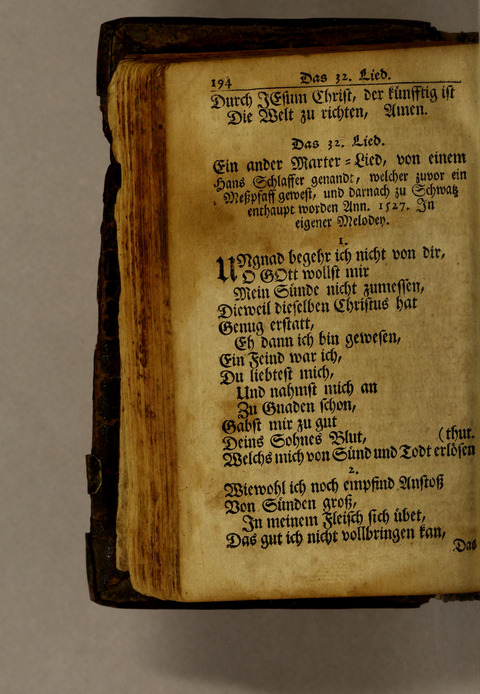 194 Das 32. Lied.
Durch JEsum Christ, der künfftig ist
Die Welt zu richten, Amen.
Das 32. Lied.
Ein ander Marter-Lied, von einem
Hans Schlaffer genandt, welcher zuvor ein
Meßpfaff gewest, und darnach zu Schwatz
enthaupt worden Ann. 1527. In
eigener Melodey.
1.
UNgnad begehr ich nicht von dir,
O GOtt wollst mir
Mein Sünde nicht zumessen,
Dieweil dieselben Christus hat
Genug erstatt,
Eh dann ich bin gewesen,
Ein Feind war ich,
Du liebtest mich,
Und nahmst mich an
Zu Gnaden schon,
Gabst mir zu gut
Deins Sohnes Blut, (thut.
Welchs mich von Sünd und Todt erlösen
2.
Wiewohl ich noch empfind Anstoß
Von Sünden groß,
In meinem Fleisch sich übet,
Das gut ich nicht vollbringen kan,
Das